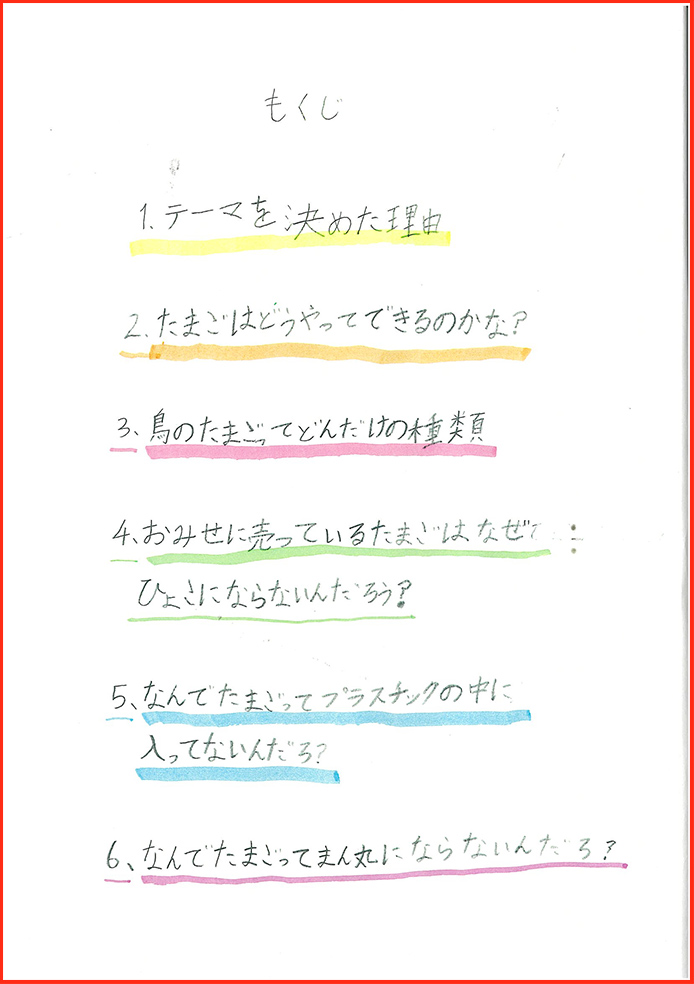 もくじ
1.テーマを決めた理由
2.たまごはどうやってできるのかな?
3、鳥のたまごってどんだけの種類
4、おみせに売っているたまごはなぜ
ひよこにならないんだろう?
5、なんでたまごってプラスチックの中に
入ってないんだろ?
6、なんでたまごってまん丸にならないんだろ?